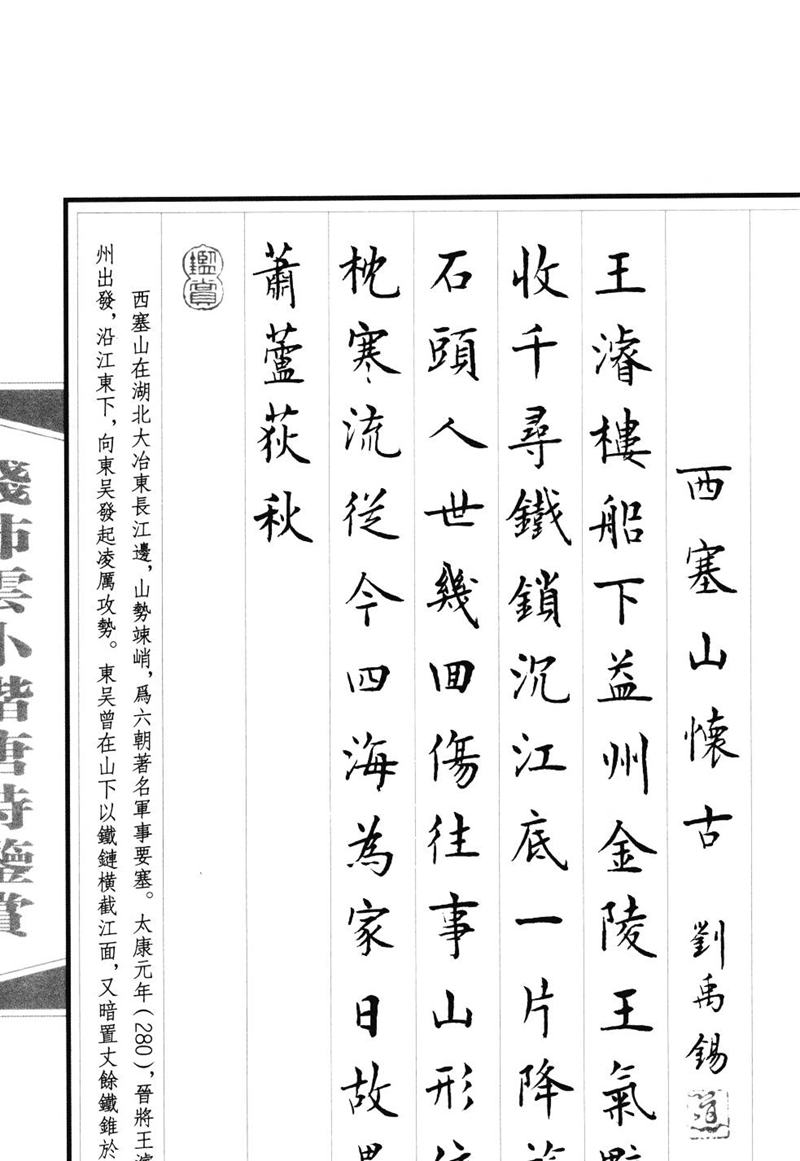 西塞山懷古 劉禹錫
王濬樓船下益州金陵王氣
收千尋鐵鎖沉江底一片降
石頭人世幾回傷往事山形
枕寒流從今四海為家日故
蕭蘆荻秋
鑑賞
西塞山在湖北大冶東長江邊，山勢竦峭，爲六朝著名軍事要塞。太康元年(280)，晉將王濬
州出發，沿江東下，向東吴發起凌厲攻勢。東吴曾在山下以鐵鏈橫截江面，又暗置丈餘鐵錐於
雲小楷唐詩鑒賞